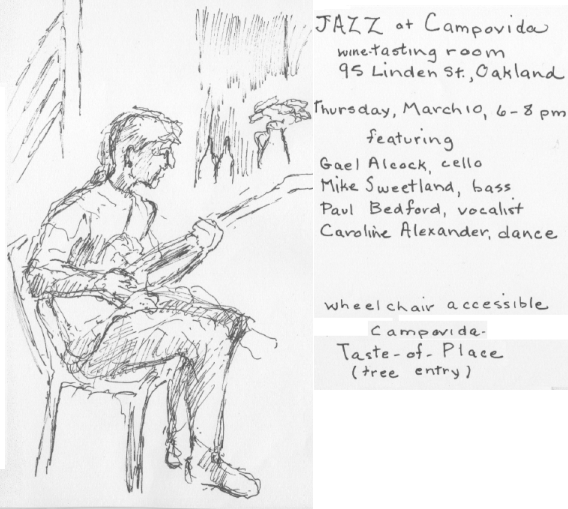 JAZZ at Campovida
wine-tasting room
95 Linden St., Oakland
Thursday, March 10, 6-8 pm
featuring
Gael Alcock, cello
Mike Sweetland, bass
Paul Bedford, vocalist
Caroline Alexander, dance
wheelchair accessible
Campovida-
Taste-of-Place
(free entry)